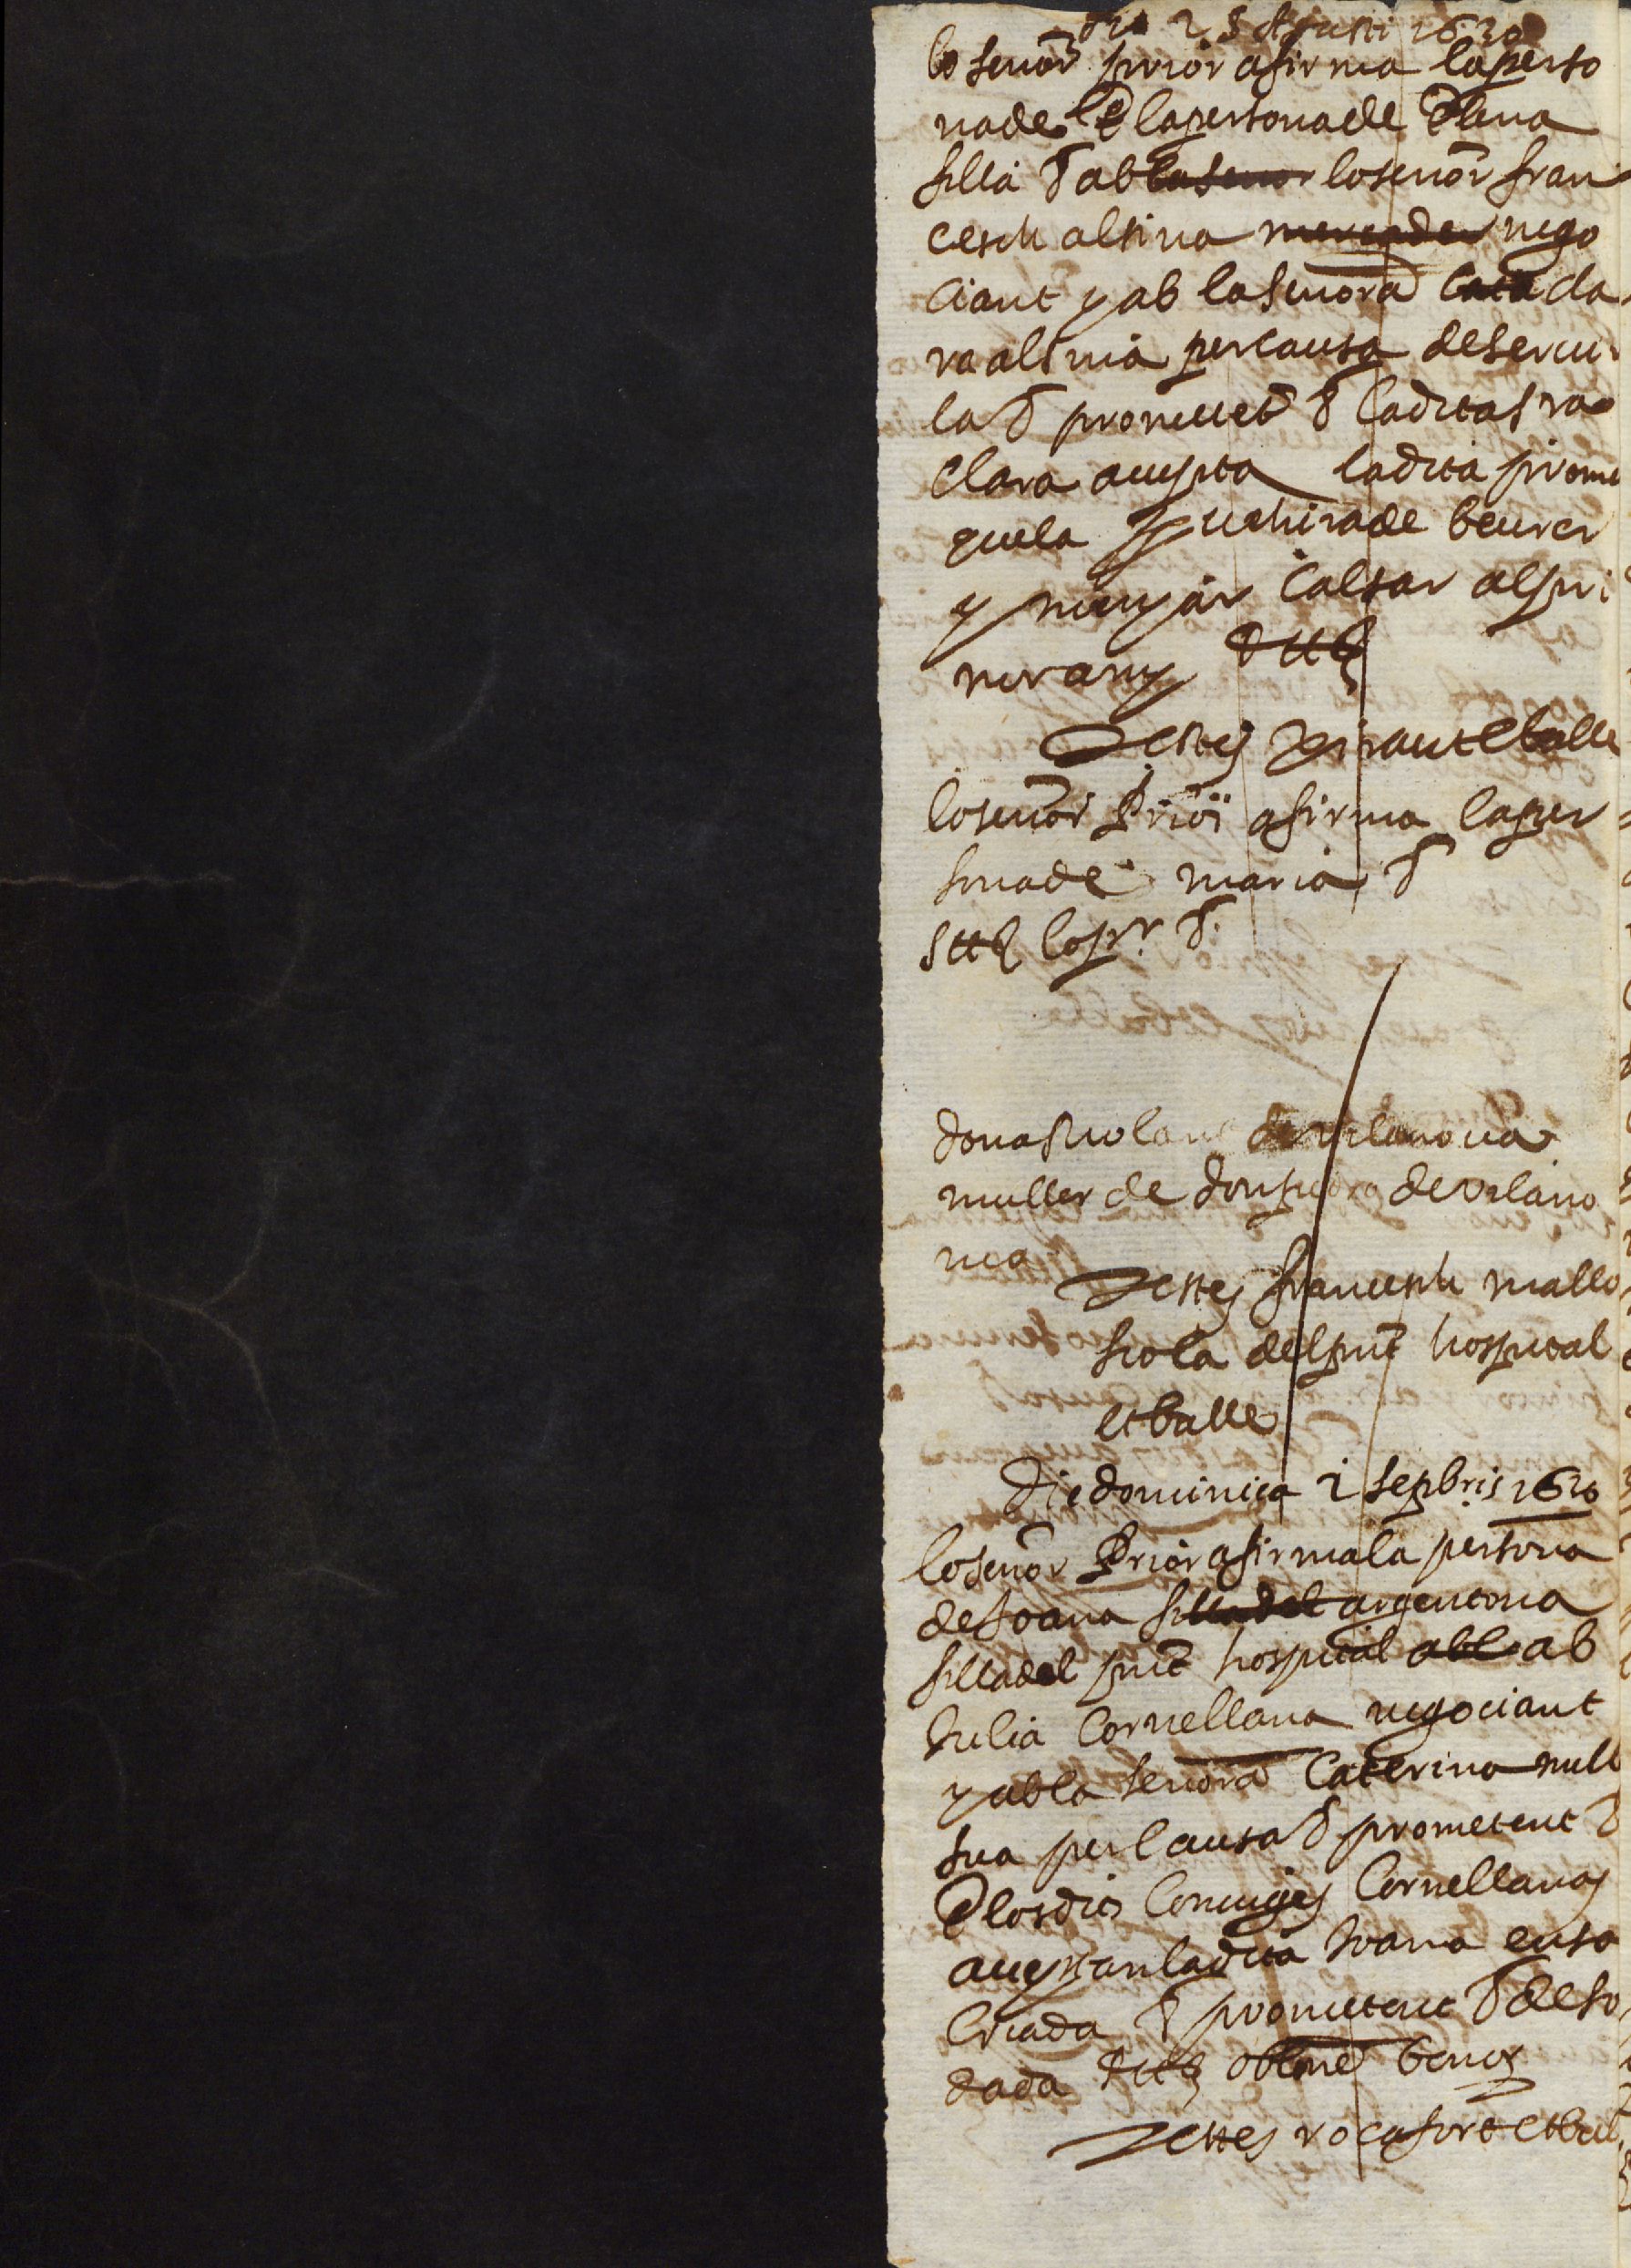 die 25 Agusti 1630
lo senor prior afirma la perso
na de la persona de Elena
filla ab la senor lo senor fran
cesch alsina mercader nego
ciant y ab la senora Cata cla
ra alsina per causa de servir
la promitet la dita sra
Clara accepta la dita prome
que la vestira de beurer
y menyar Calsar al pri
mer any
Testes et balle
lo senor Prior afirma la per
sona de maria
lo pr.
dona de vilanova
muller de don pedro de vilano
va
Testes francesch mallo
scola del pnt hospital
et balle
Die dominica 1 sepbris 1630
lo senor Prior afirma la persona
de Joana filla del argentona
filla del pnt hospital abl ab
Julia Cornellana negociant
y ab la senora Caterina mull
sua per causa prometent
los dits Conuiges Cornellanas
acceptan la dita Joana en sa
Criada prometent de so
dada bens
Testes rocafort et bal